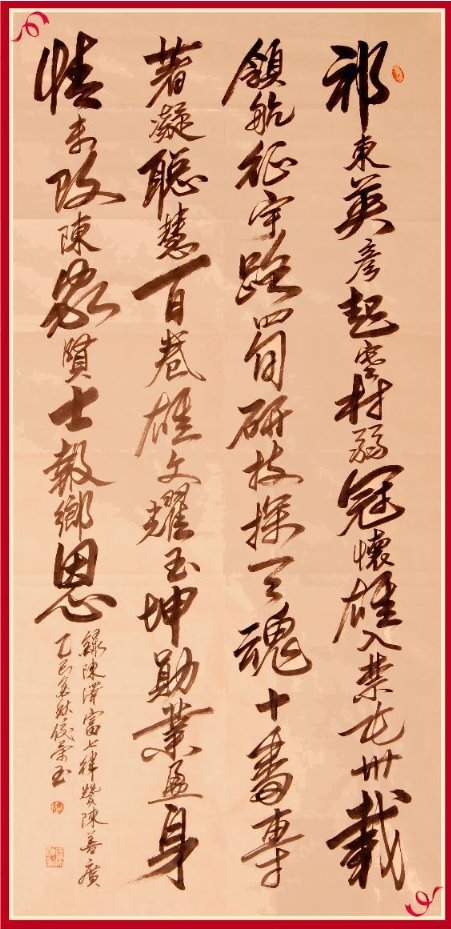 祁東英彥起雲村弱冠懷雄入禁屯卅載
領航征宇路四旬研技探天魂十番專
著凝聰慧百卷雄文耀玉坤勛業盈身
情未改陳家賢士報鄉恩
錄陳澤富七律贊陳善廣
乙巳孟秋俊